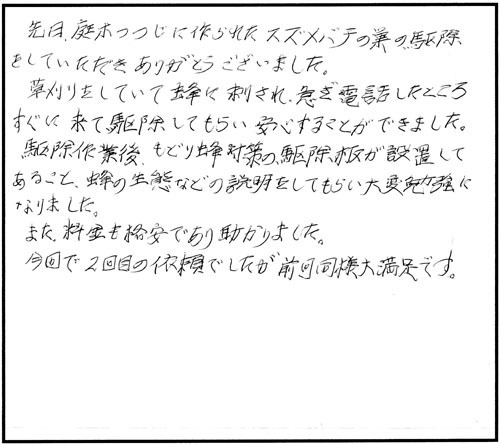 先日、庭木つつじに作られたスズメバチの巣の駆除
をしていただきありがとうございました。
草刈りをしていて蜂に刺され、急ぎ電話したところ
すぐに来て駆除してもらい安心することができました。
駆除作業後、もどり蜂対策の駆除板が設置して
あること、蜂の生態などの説明をしてもらい大変勉強に
なりました。
また、料金も格安であり助かりました。
今回で2回目の依頼でしたが前回同様大満足です。